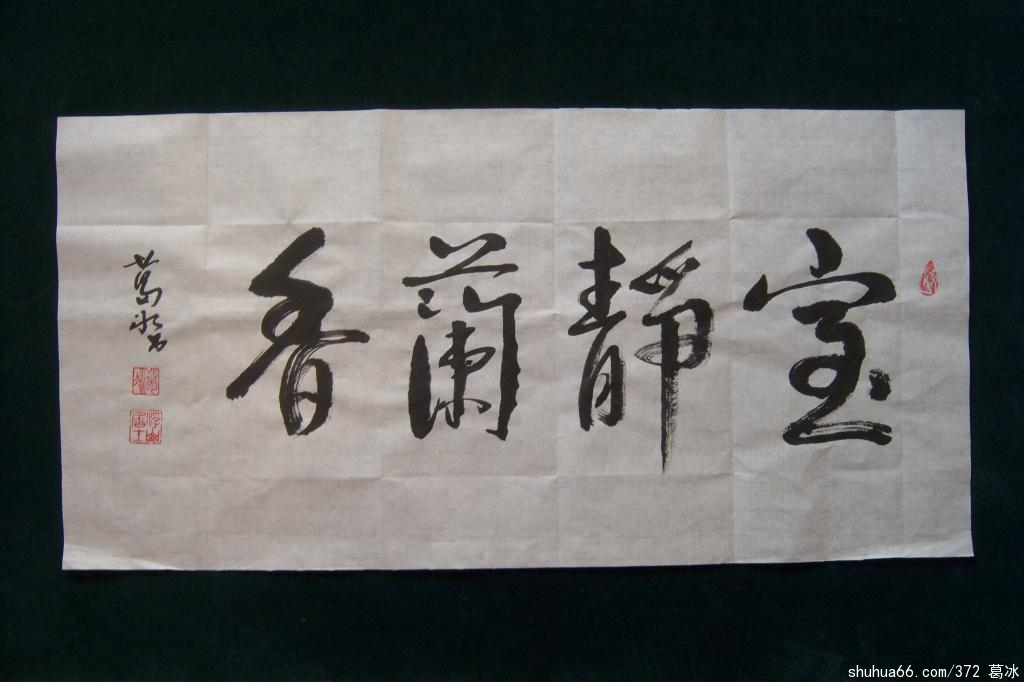 室靜蘭香
葛冰书
shuhua66.com/372 葛冰